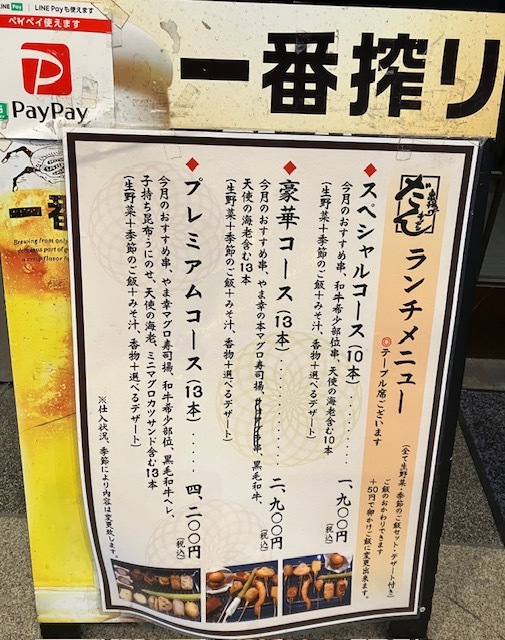 LINE Pay
LINE Payも使えます
ペイペイ使えます
PayPay
一番搾り
一番
Brewing from only
ランチメニュー
◎テーブル席ございます
(全て生野菜・季節のご飯セット・デザート付き)
ご飯のおかわりできます
+50円で卵かけご飯に変更出来ます。
◆スペシャルコース(10本)………一、九〇〇円(税込)
今月のおすすめ串、和牛希少部位串、天使の海老含む10本
(生野菜+季節のご飯+みそ汁、香物+選べるデザート)
◆豪華コース(13本)………二、九〇〇円(税込)
今月のおすすめ串、やま幸の本マグロ寿司揚、黒毛和牛、
天使の海老含む13本
(生野菜+季節のご飯+みそ汁、香物+選べるデザート)
◆プレミアムコース(13本)……四、二〇〇円(税込)
今月のおすすめ串、やま幸マグロ寿司揚、和牛希少部位、黒毛和牛ヘレ、
子持ち昆布うにのせ、天使の海老、ミニマグロカツサンド含む13本
(生野菜+季節のご飯+みそ汁、香物+選べるデザート)
※仕入状況、季節により内容は変更致します。